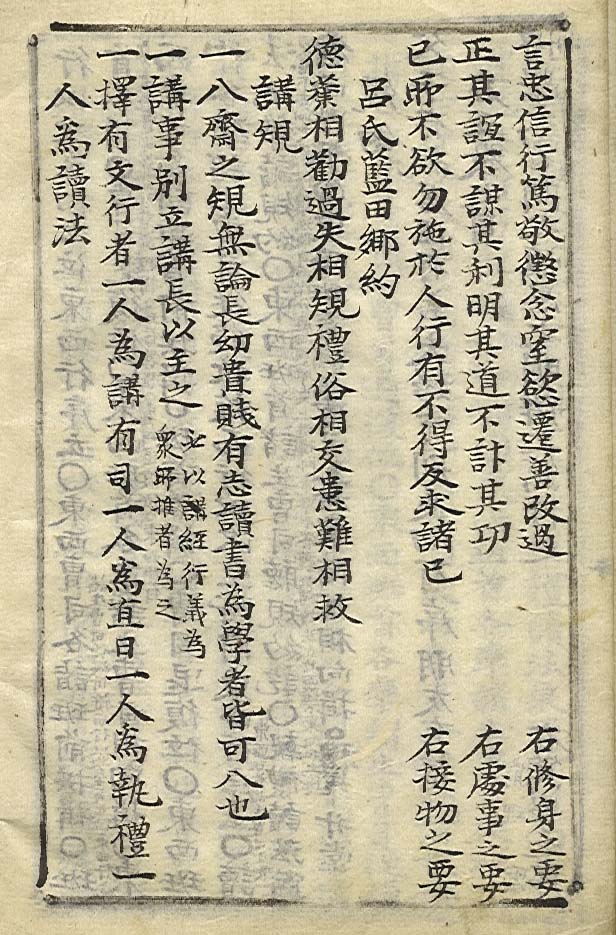 言忠信行篤敬懲忿窒慾遷善改過　右修身之要
正其誼不謀其利明其道不計其功　右處事之要
已所不欲勿施於人行有不得反求諸已　右接物之要
呂氏藍田鄉約
德業相勸過失相䂓禮俗相交患難相救
講䂓
一入齋之䂓無論長幼貴賤有志讀書為學者皆可入也
一講事別立講長以主之
必以講經行義為
衆所推者為之
一擇有文行者一人為講有司一人爲直日一人爲執禮一
人爲讀法